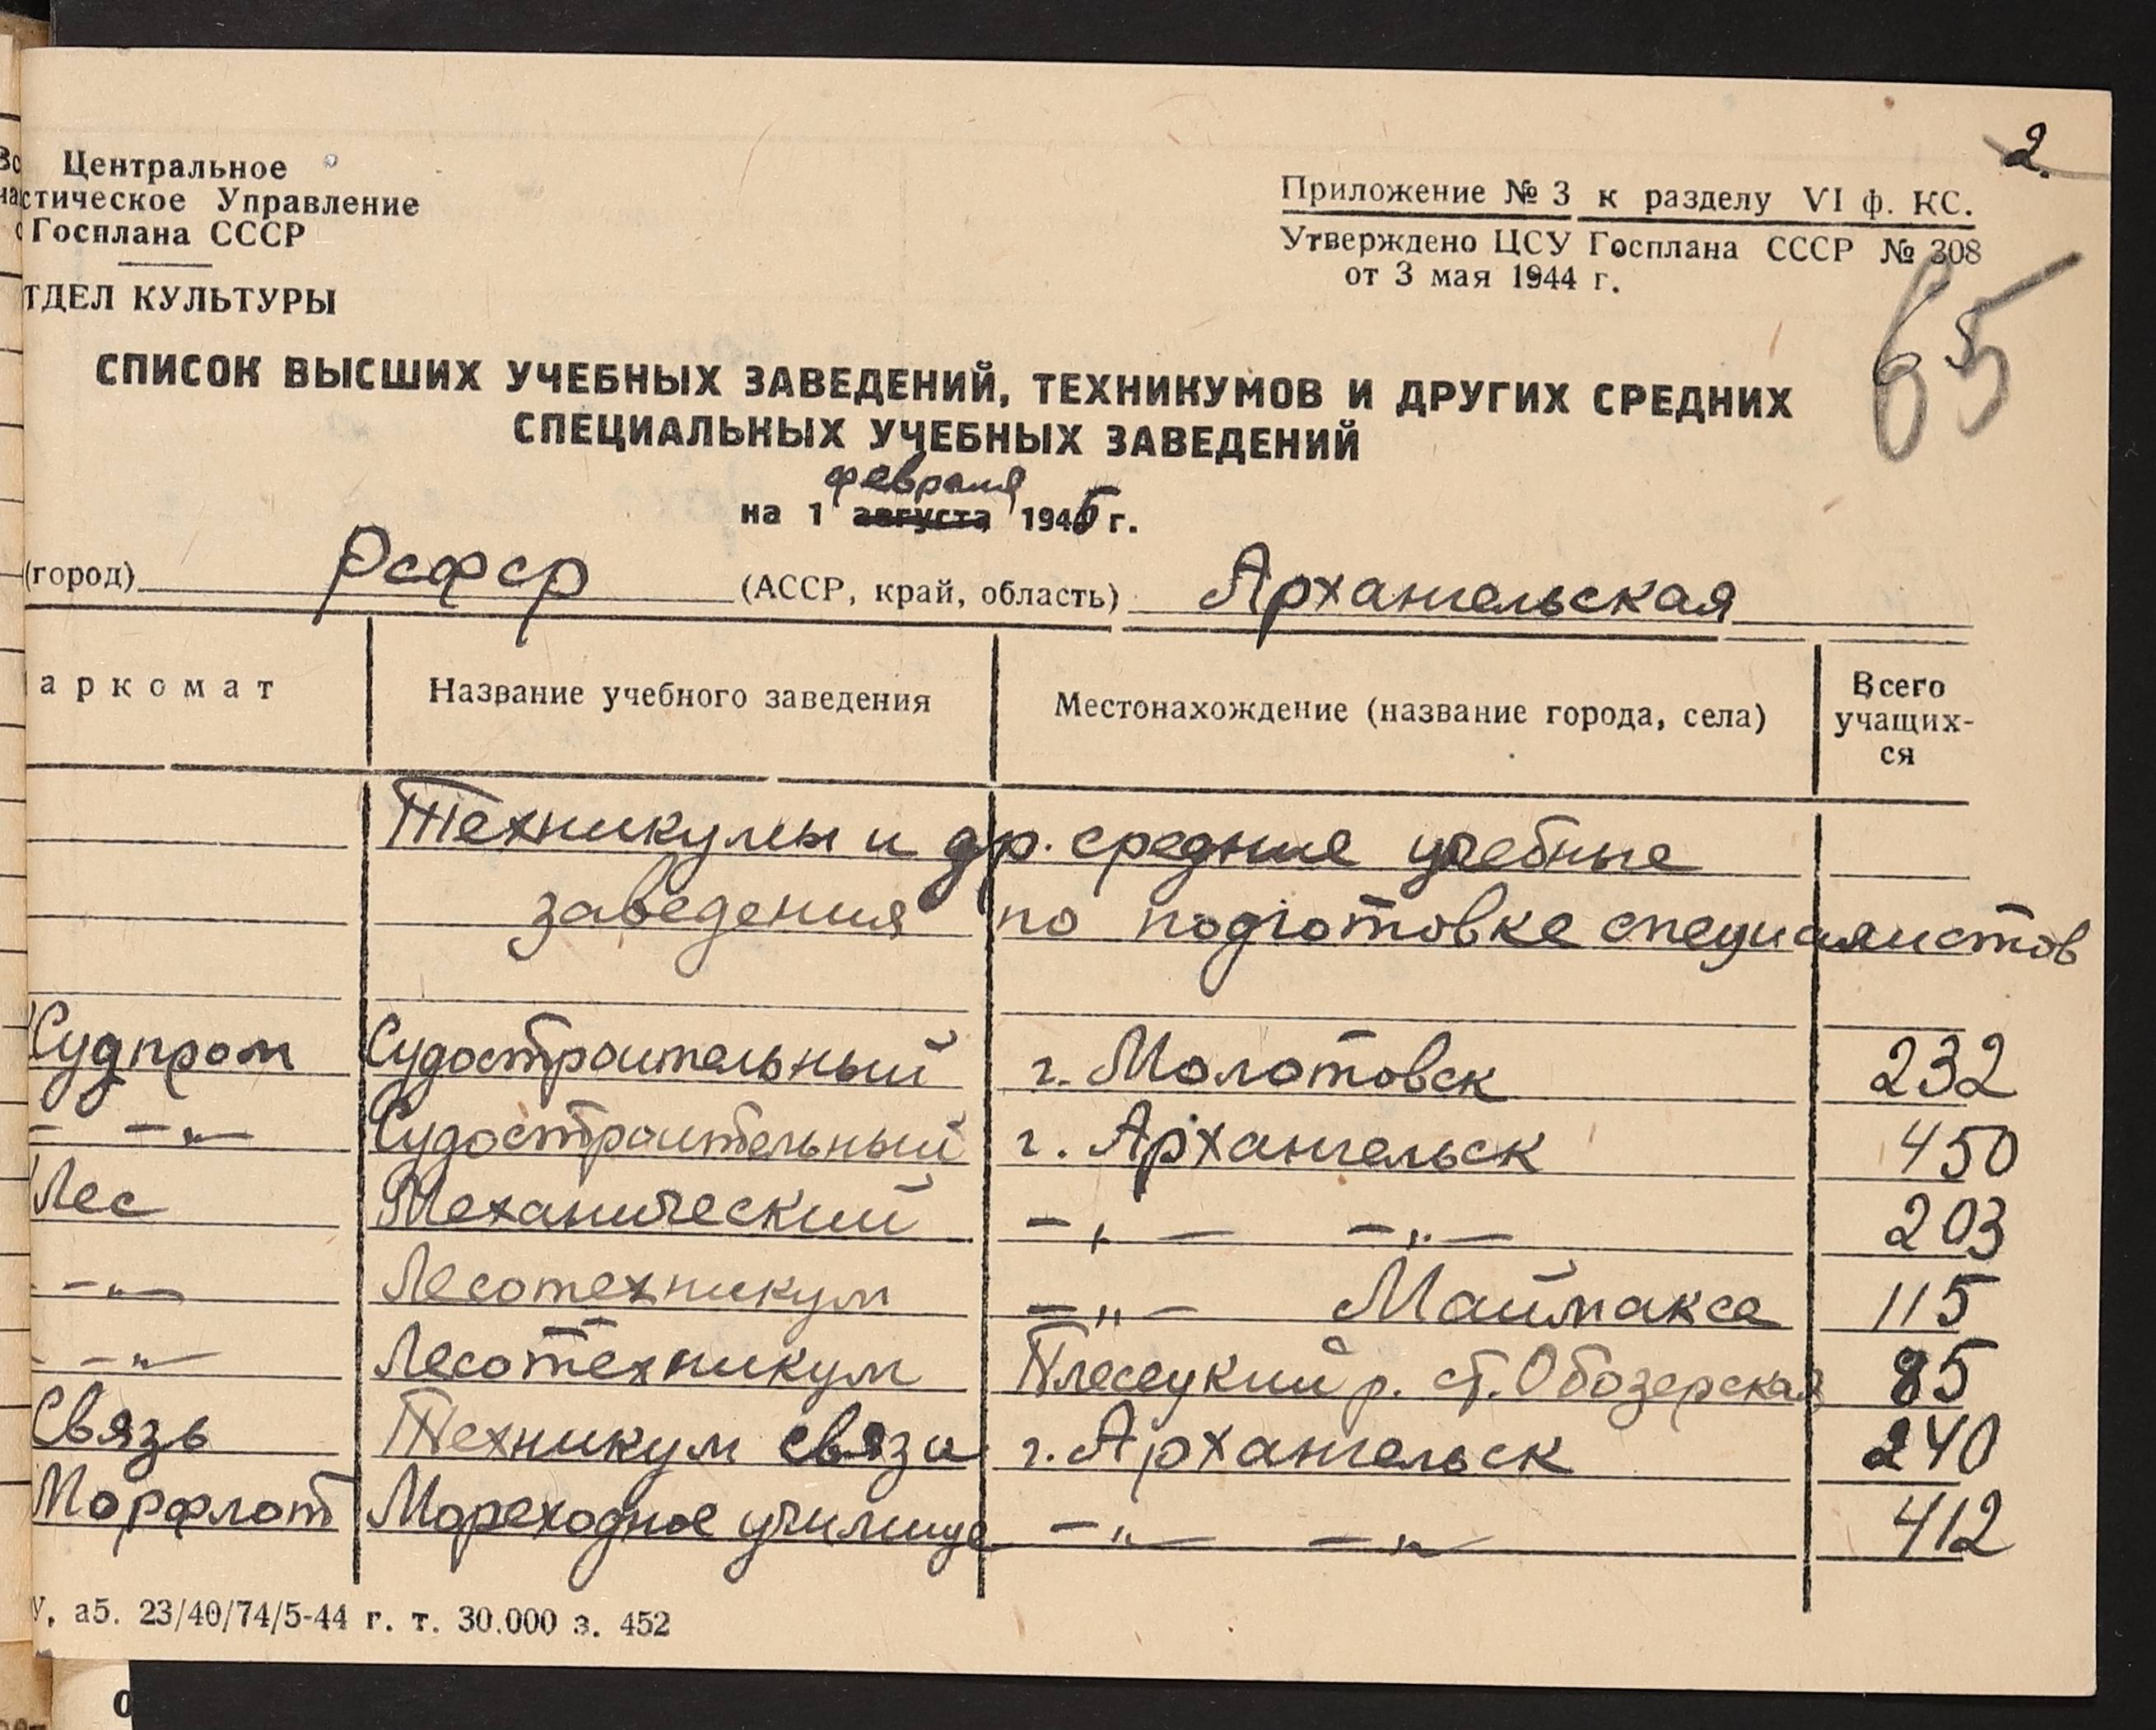 2.
Центральное
стическое Управление
Госплана СССР
ТДЕЛ КУЛЬТУРЫ
Приложение № 3 к разделу VI ф. КС.
Утверждено ЦСУ Госплана СССР № 308
от 3 мая 1944 г.
65
СПИСОК ВЫСШИХ УЧЕБНЫХ ЗАВЕДЕНИЙ, ТЕХНИКУМОВ И ДРУГИХ СРЕДНИХ
СПЕЦИАЛЬНЫХ УЧЕБНЫХ ЗАВЕДЕНИЙ
февраля
на 1 августа 1945 г.
(город) РСФСР (АССР, край, область) Архангельская
аркомат Название учебного заведения Местонахождение (название города, села) Всего
учащих-
ся
Техникумы и др. средние учебные
заведения по подготовке специалистов
Судпром Судостроительный г. Молотовск 232
- -"- Судостроительный г. Архангельск 450
Лес Механический -"- -"- 203
-"- Лесотехникум -"- Маймакса 115
-"- Лесотехникум Плесецкий р. ст. Обозерская 85
Связь Техникум связи г. Архангельск 240
Морфлот Мореходное училище -"- -"- 412
У, а5. 23/40/74/5-44 г. т. 30.000 з. 452